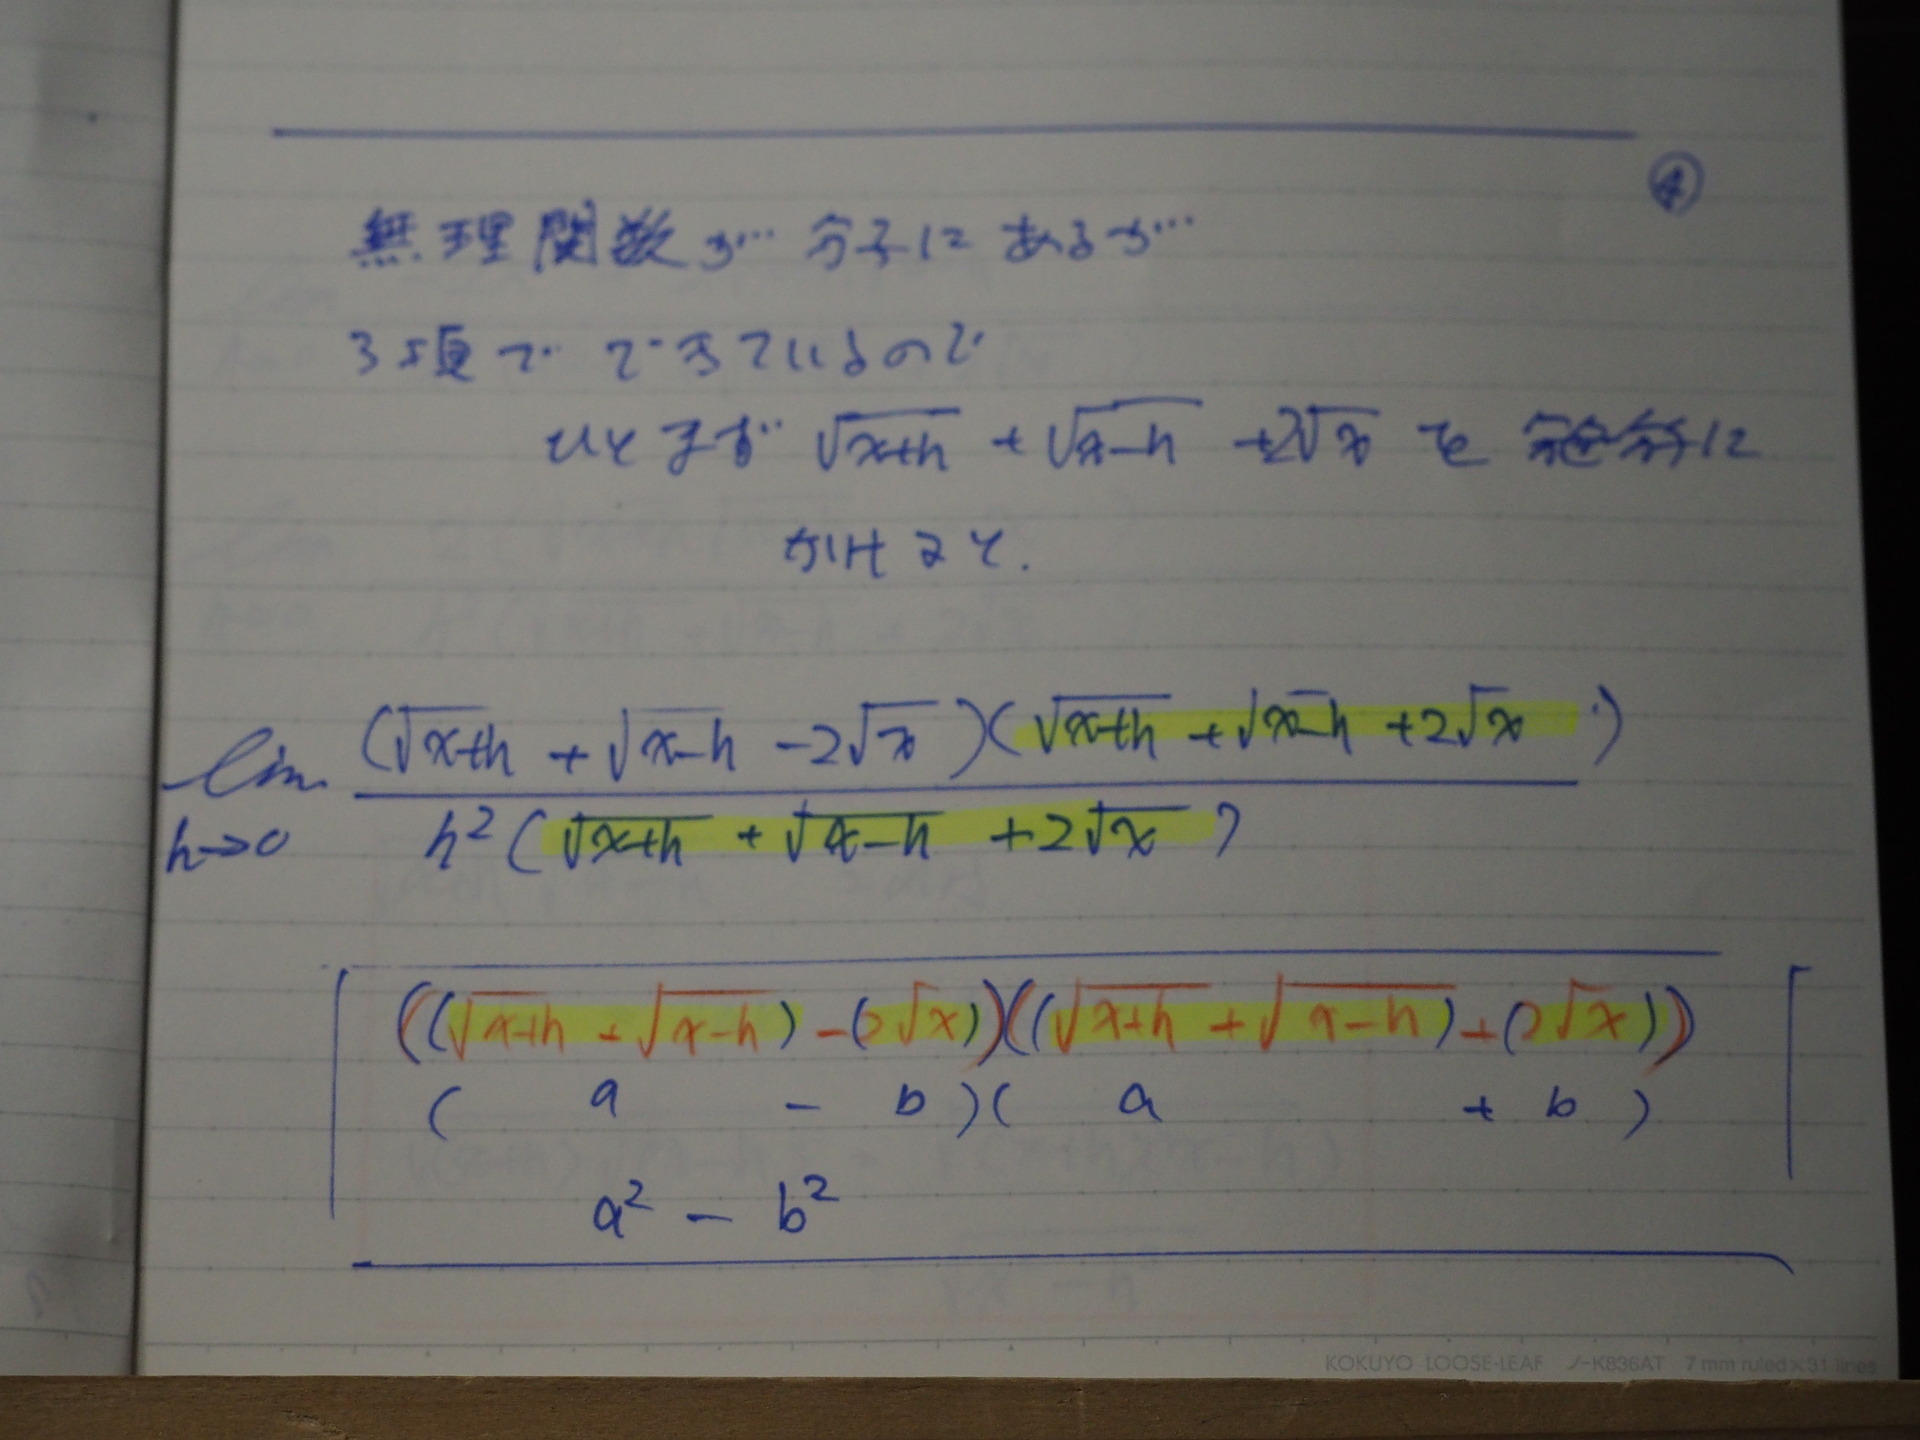 ④
無理関数が分子にあるが
3項でできているので
ひとまず √(x+h) + √(x-h) + 2√x を 分母分子に
かけると.
lim h→0 (√(x+h) + √(x-h) - 2√x)(√(x+h) + √(x-h) + 2√x) / h²(√(x+h) + √(x-h) + 2√x)
((√(x+h) + √(x-h)) - (2√x))((√(x+h) + √(x-h)) + (2√x))
( a - b )( a + b )
a² - b²
KOKUYO LOOSE-LEAF ノ-K836AT 7 mm ruled×31 lines